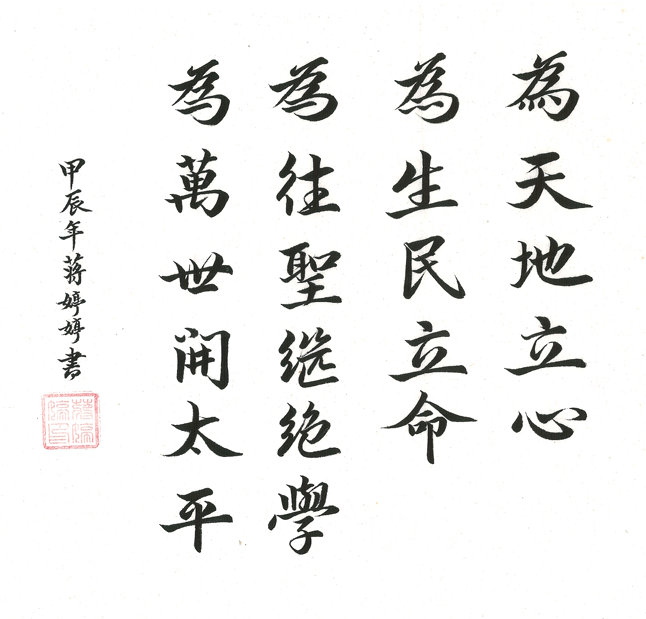 為天地立心
為生民立命
為往聖继绝學
為萬世開太平
甲辰年蒋婷婷書